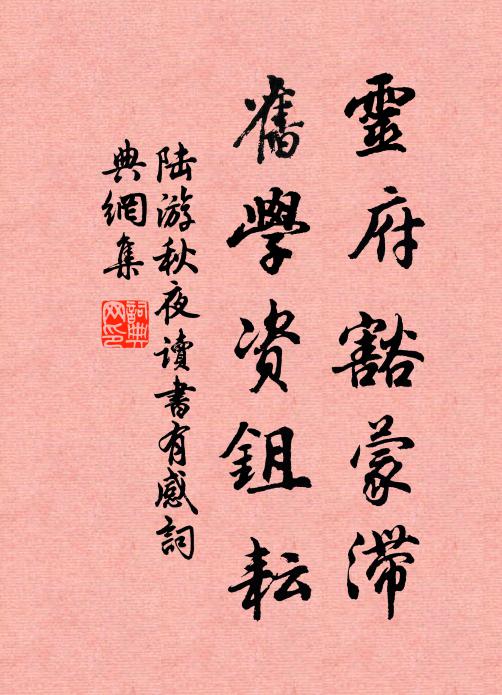 靈府豁蒙滞
舊學资鉏耘
陆游秋夜讀書有感詞
典網集
詞典网印